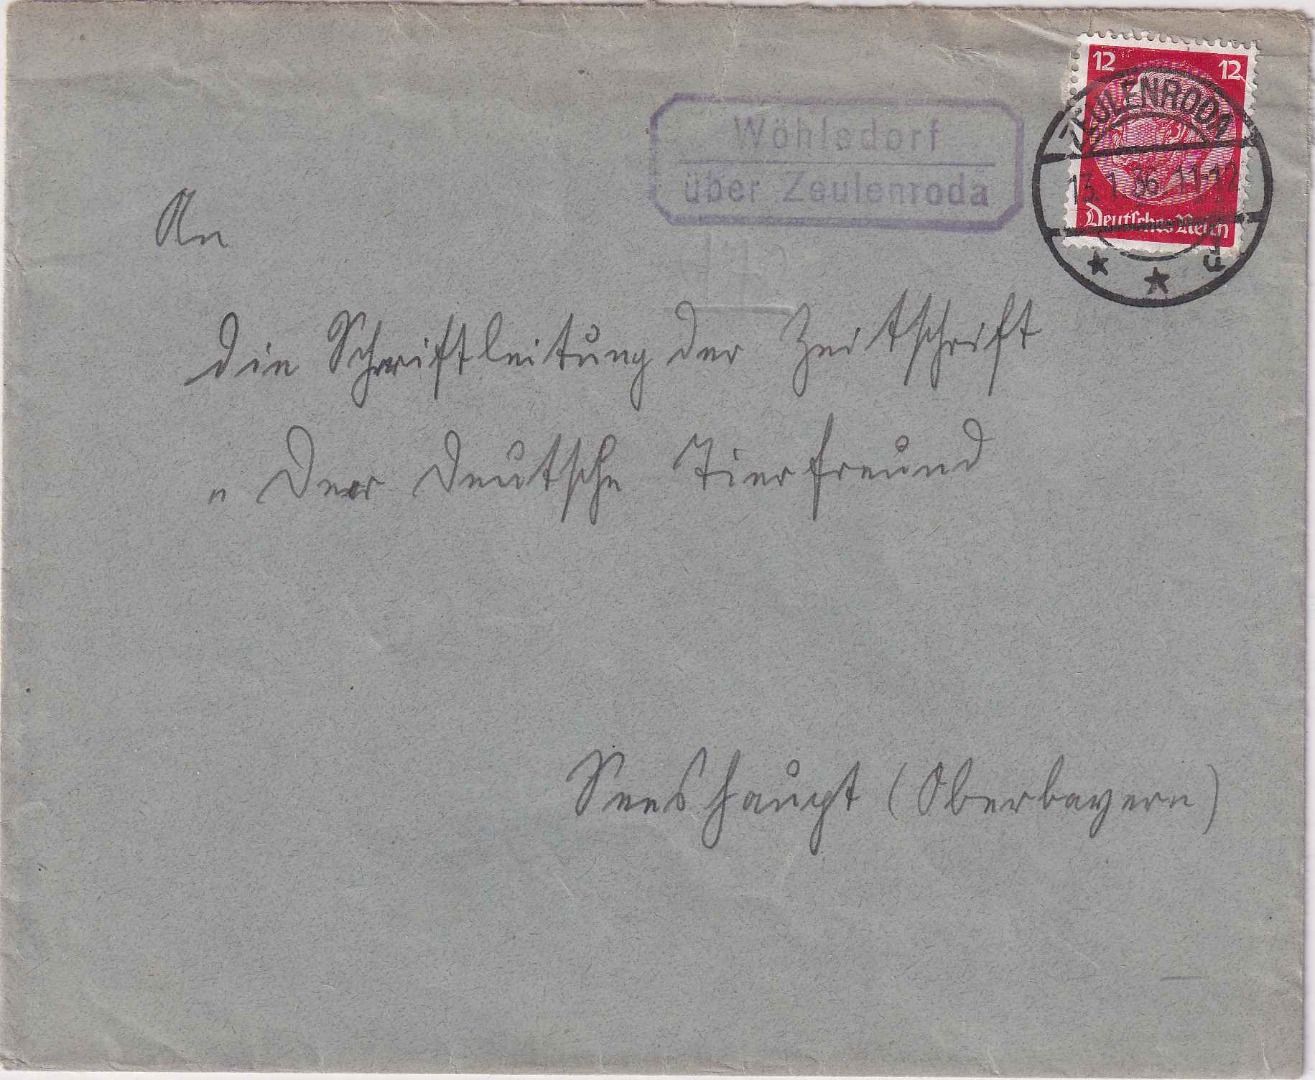 Wöhlsdorf
über Zeulenroda
12 12
Deutsches Reich
ZEULENRODA
13.1.36. 11-12
An
die Schriftleitung der Zeitschrift
„ Der deutsche Tierfreund
Seeshaupt (Oberbayern)